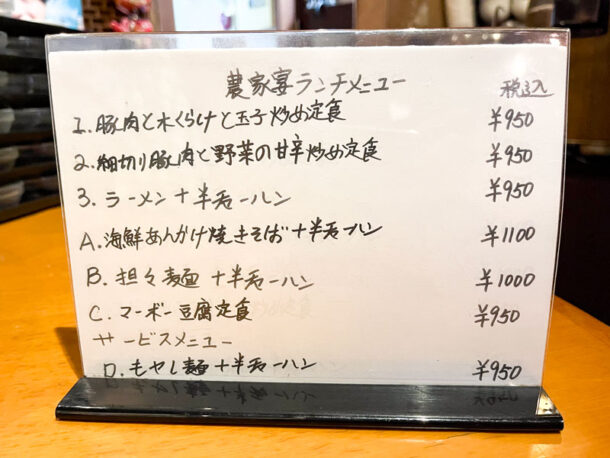 農家宴ランチメニュー 税込
1. 豚肉と木くらげと玉子炒め定食 ¥950
2. 細切り豚肉と野菜の甘辛炒め定食 ¥950
3. ラーメン+半チャーハン ¥950
A. 海鮮あんかけ焼きそば+半チャーハン ¥1100
B. 担々麺+半チャーハン ¥1000
C. マーボー豆腐定食 ¥950
サービスメニュー
D. もやし麺+半チャーハン ¥950